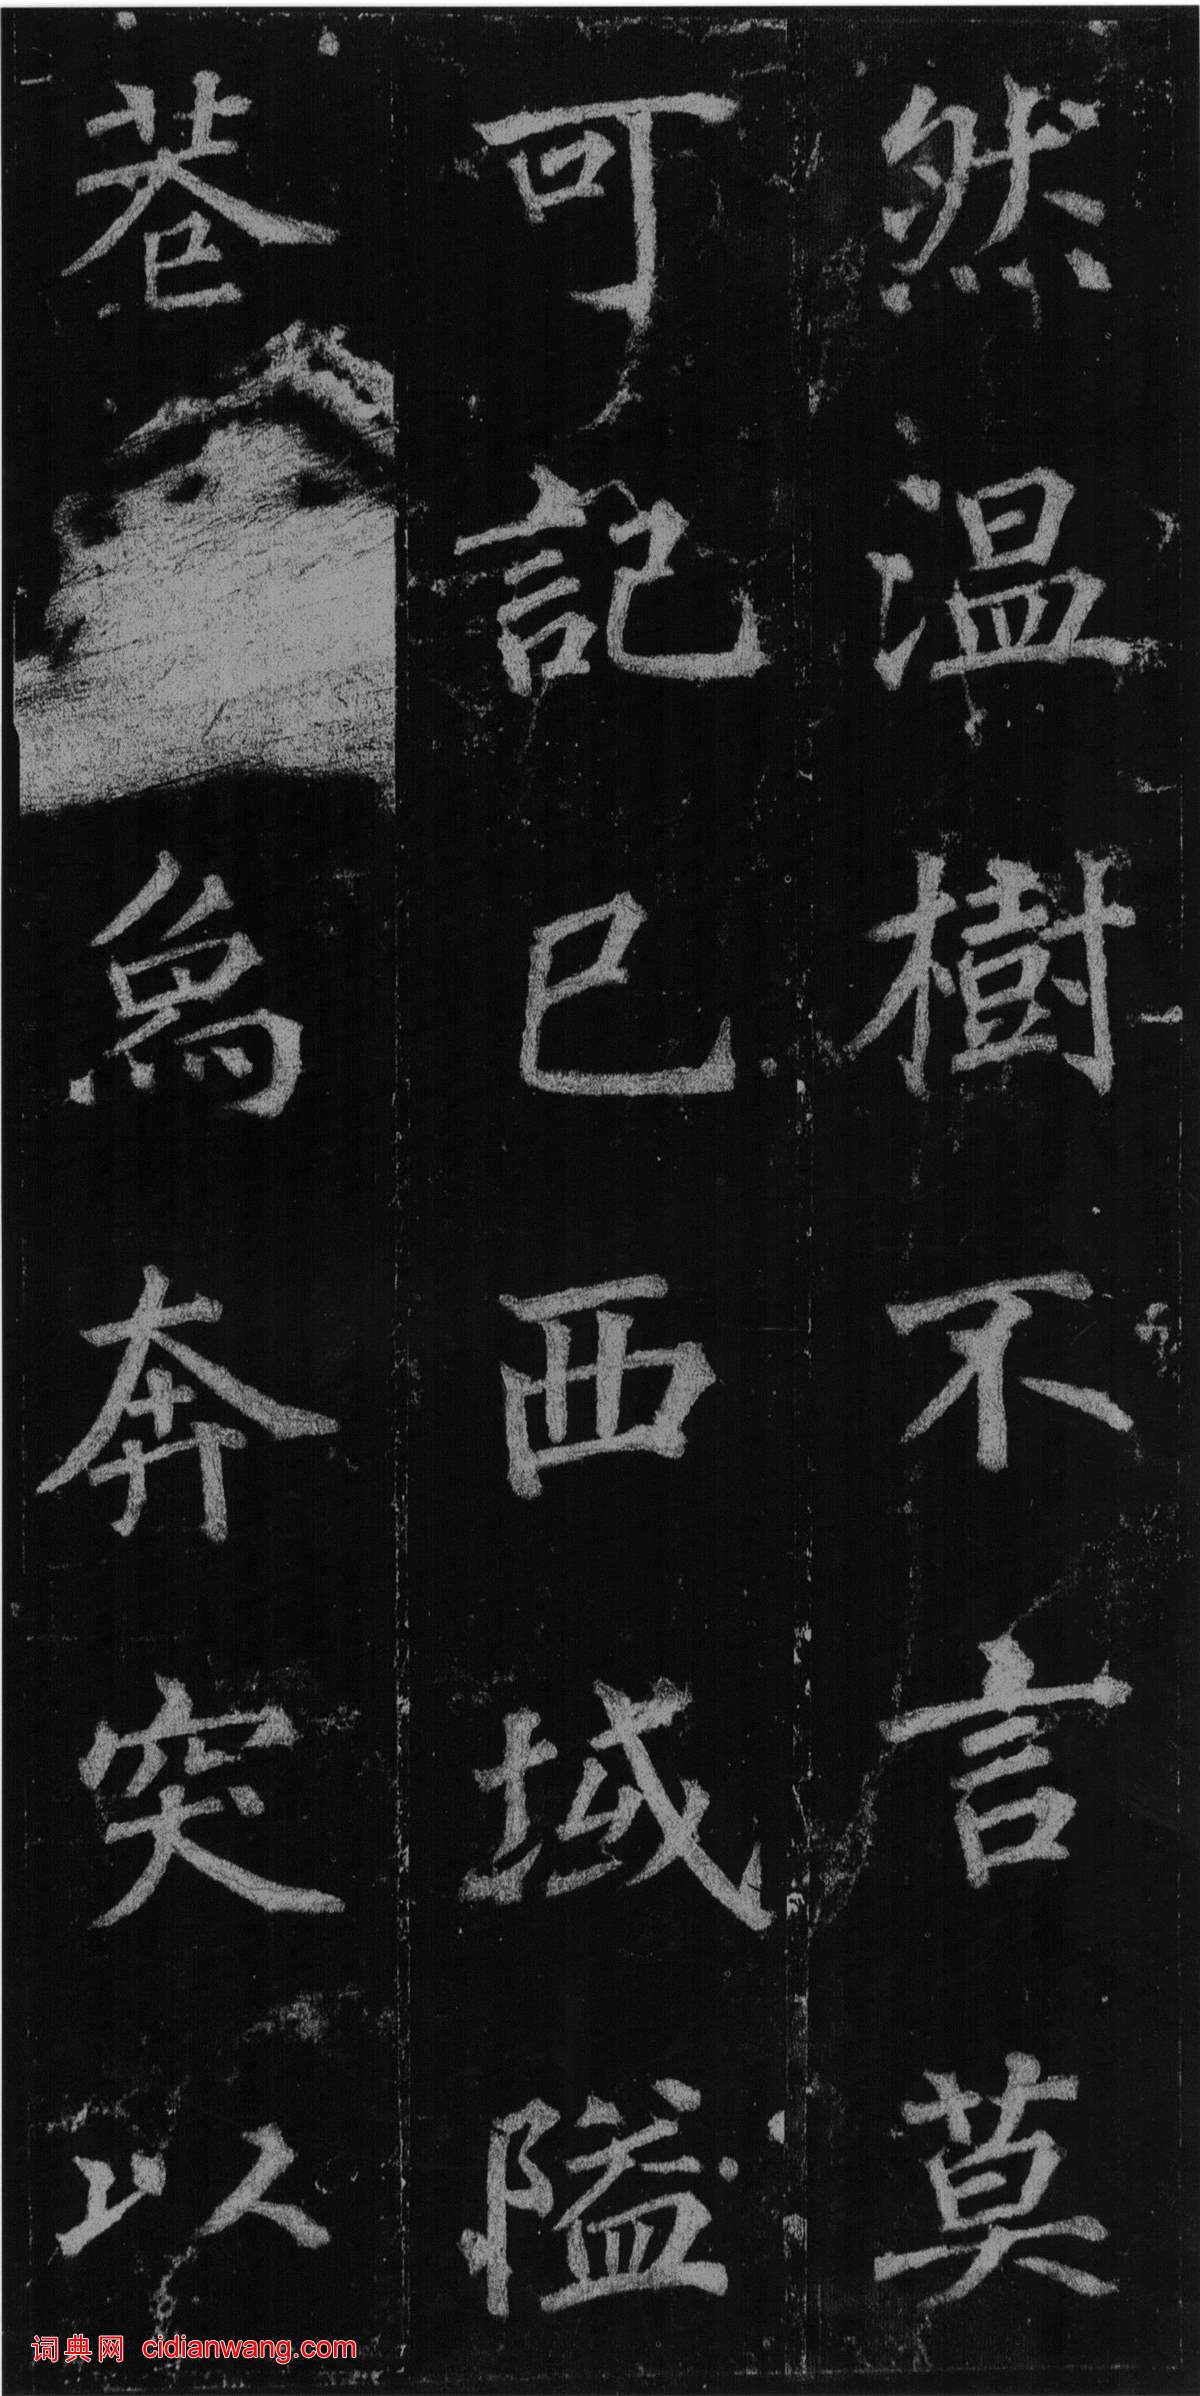 然温樹不言莫
可記巳西域隘
巷爲奔突以
词典网 cidianwang.com